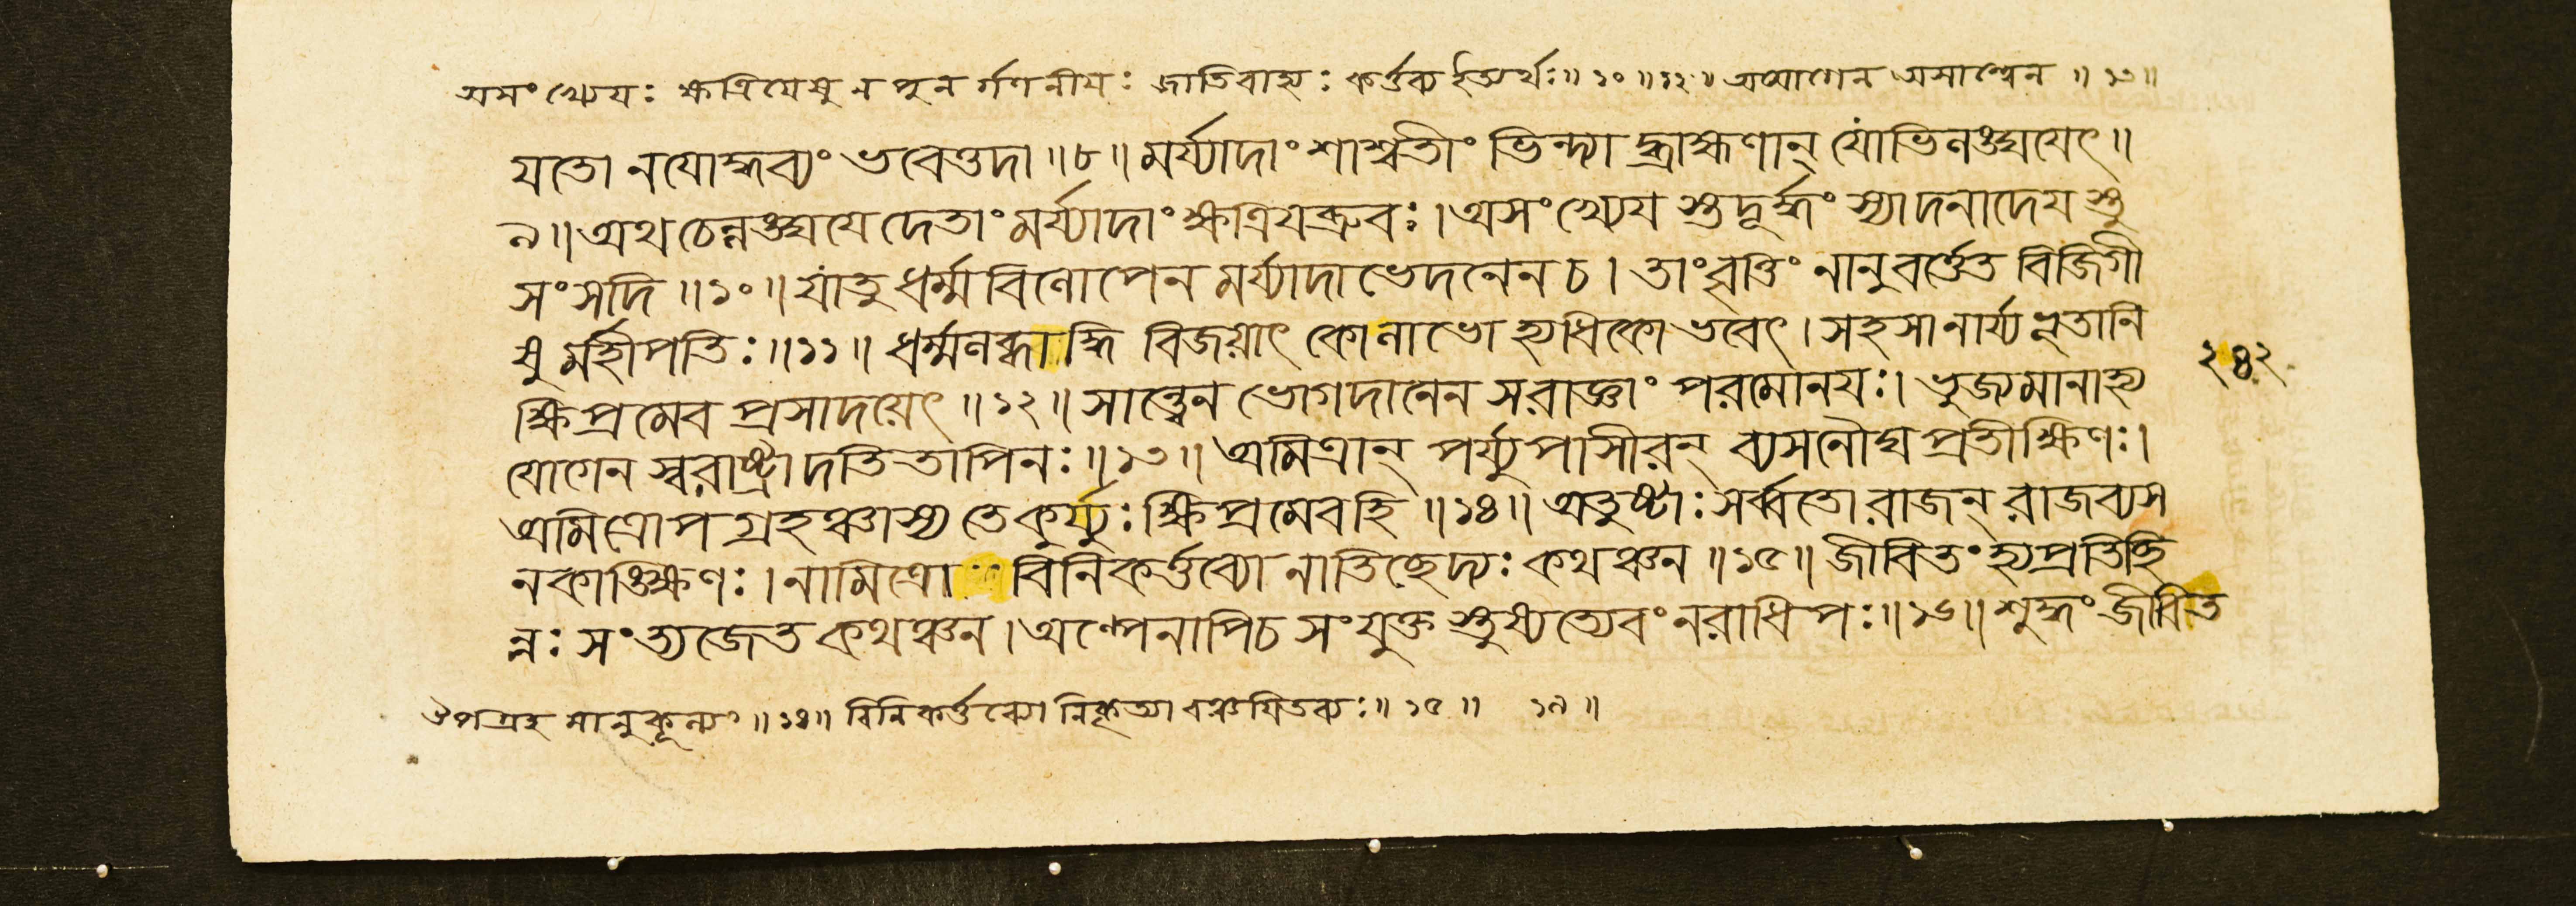 অসংখ্যেয়ঃ ক্ষত্রিয়েষু ন পুনর্গণনীয়ঃ জাতিবাহ্যঃ কর্ত্তব্য ইত্যর্থঃ॥১০॥১২॥ অযোগেন অসান্ত্বেন ॥১৩॥
যতো নযোদ্ধব্যং ভবেত্তদা॥৮॥মর্য্যাদাং শাশ্বতীং ভিন্দ্যাদ্ব্রাহ্মণান্ যোঽভিলঙ্ঘয়েৎ॥
৯॥অথ চেল্লঙ্ঘয়েদেতাং মর্য্যাদাং ক্ষত্রিয়ব্রুবঃ।অসংখ্যেয়স্তদূর্দ্ধং স্যাদনাদেয়স্তু
সংসদি॥১০॥যাংতু ধর্ম্মবিলোপেন মর্য্যাদাভেদনেন চ। তাংবৃত্তিং নানুবর্ত্তেত বিজিগী
ষুর্মহীপতিঃ॥১১॥ধর্ম্মলব্ধাদ্ধি বিজয়াৎ কোলাভোহ্যধিকোভবেৎ।সহসানার্য্যভূতানি
ক্ষিপ্রমেব প্রসাদয়েৎ॥১২॥সান্ত্বেন ভোগদানেন সরাজ্ঞাং পরমোনয়ঃ।ভুজ্যমানাহ্য
যোগেন স্বরাষ্ট্রাদতিতাপিনঃ॥১৩॥অমিত্রান্ পর্য্যুপাসীরন্ ব্যসনৌঘপ্রতীক্ষিণঃ।
অমিত্রোপগ্রহঞ্চাস্য তেকুর্য্যুঃক্ষিপ্রমেবহি॥১৪॥অতুষ্টাঃসর্ব্বতোরাজন্ রাজব্যস
নকাঙ্ক্ষিণঃ।নামিত্রো বিনিকর্ত্তব্যো নাতিছেদ্যঃ কথঞ্চন॥১৫॥জীবিতং হ্যপ্রতিচ্ছি
ন্নঃ সংত্যজেত কথঞ্চন।অল্পেনাপিচ সংযুক্তস্তুষ্যত্যেবং নরাধিপঃ॥১৬॥শুদ্ধং জীবিত
২৪২
উপগ্রহমানুকূল্যং॥১৪॥ বিনিকর্ত্তব্যো নিকৃত্যা বঞ্চয়িতব্যঃ॥১৫॥ ১৯॥